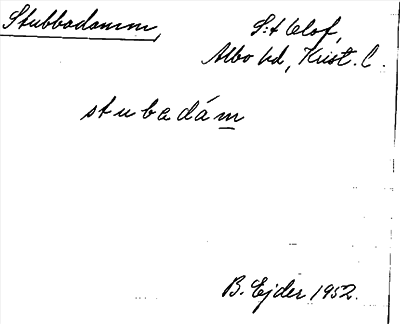 Stubbadamm,
S:t Olof,
Albo hd, Krist. l.
stubadám
B. Ejder 1952.